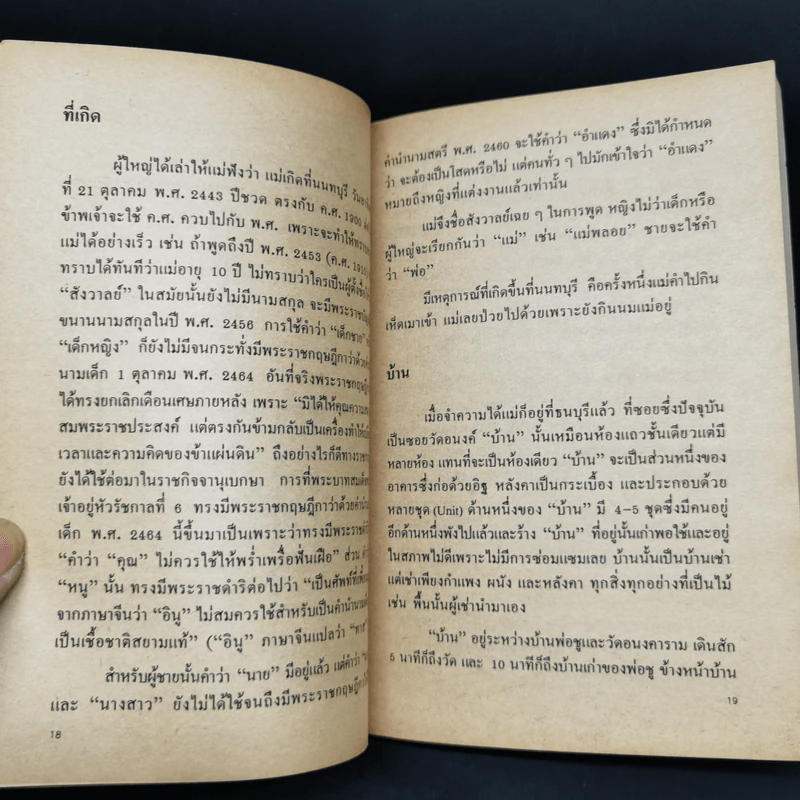 ที่เกิด
ผู้ใหญ่ได้เล่าให้แม่ฟังว่า แม่เกิดที่นนทบุรี
ที่ 21 ตุลาคม พ.ศ. 2443 ปีชวด ตรงกับ ค.ศ. 1900
ข้าพเจ้าจะใช้ ค.ศ. ควบไปกับ พ.ศ. เพราะจะทำให้
แม่ได้อย่างเร็ว เช่น ถ้าพูดถึงปี พ.ศ. 2453 (ค.ศ.
ทราบได้ทันทีว่าแม่อายุ 10 ปี ไม่ทราบว่าใครเป็นผู้ตั้งชื่อ
“สังวาลย์” ในสมัยนั้นยังไม่มีนามสกุล จะมีพระราช
ขนานนามสกุลในปี พ.ศ. 2456 การใช้คำว่า “เด็กชาย”
“เด็กหญิง” ก็ยังไม่มีจนกระทั่งมีพระราชกฤษฎีกาว่าด้วย
นามเด็ก 1 ตุลาคม พ.ศ. 2464 อันที่จริงพระราชกฤษฎี
ได้ทรงยกเลิกเดือนเศษภายหลัง เพราะ “มิได้ให้คุณความ
สมพระราชประสงค์ แต่ตรงกันข้ามกลับเป็นเครื่องทำให้
เวลาและความคิดของข้าแผ่นดิน” ถึงอย่างไรก็ดีทาง
ยังได้ใช้ต่อมาในราชกิจจานุเบกษา การที่พระบาทสมเด็จ
เจ้าอยู่หัวรัชกาลที่ 6 ทรงมีพระราชกฤษฎีกาว่าด้วย
เด็ก พ.ศ. 2464 นี้ขึ้นมาเป็นเพราะว่าทรงมีพระราชดำริ
“คำว่า “คุณ” ไม่ควรใช้ให้พร่ำเพรื่อฟั่นเฝือ” ส่วน
“หนู” นั้น ทรงมีพระราชดำริต่อไปว่า “เป็นศัพท์ที่
จากภาษาจีนว่า “อินู” ไม่สมควรใช้สำหรับเป็นคำนำนาม
เป็นเชื้อชาติสยามแท้” (“อินู” ภาษาจีนแปลว่า “ทาส”
สำหรับผู้ชายนั้นคำว่า “นาย” มีอยู่แล้ว แต่คำว่า
และ “นางสาว” ยังไม่ได้ใช้จนถึงมีพระราชกฤษฎีกา
18
คำนำนามสตรี พ.ศ. 2460 จะใช้คำว่า “อำแดง” ซึ่งมิได้กำหนด
ว่า จะต้องเป็นโสดหรือไม่ แต่คนทั่ว ๆ ไปมักเข้าใจว่า “อำแดง”
หมายถึงหญิงที่แต่งงานแล้วเท่านั้น
แม่จึงชื่อสังวาลย์เฉย ๆ ในการพูด หญิงไม่ว่าเด็กหรือ
ผู้ใหญ่จะเรียกกันว่า “แม่” เช่น “แม่พลอย” ชายจะใช้คำ
ว่า “พ่อ”
มีเหตุการณ์ที่เกิดขึ้นที่นนทบุรี คือครั้งหนึ่งแม่คำไปกิน
เห็ดเมาเข้า แม่เลยป่วยไปด้วยเพราะยังกินนมแม่อยู่
บ้าน
เมื่อจำความได้แม่ก็อยู่ที่ธนบุรีแล้ว ที่ซอยซึ่งปัจจุบัน
เป็นซอยวัดอนงค์ “บ้าน” นั้นเหมือนห้องแถวชั้นเดียวแต่มี
หลายห้อง แทนที่จะเป็นห้องเดียว “บ้าน” จะเป็นส่วนหนึ่งของ
อาคารซึ่งก่อด้วยอิฐ หลังคาเป็นกระเบื้อง และประกอบด้วย
หลายชุด (Unit) ด้านหนึ่งของ “บ้าน” มี 4-5 ชุดซึ่งมีคนอยู่
อีกด้านหนึ่งพังไปแล้วและร้าง “บ้าน” ที่อยู่นั้นเก่าพอใช้และอยู่
ในสภาพไม่ดีเพราะไม่มีการซ่อมแซมเลย บ้านนั้นเป็นบ้านเช่า
แต่เช่าเพียงกำแพง ผนัง และหลังคา ทุกสิ่งทุกอย่างที่เป็นไม้
เช่น พื้นนั้นผู้เช่านำมาเอง
“บ้าน” อยู่ระหว่างบ้านพ่อชูและวัดอนงคาราม เดินสัก
5 นาทีก็ถึงวัด และ 10 นาทีก็ถึงบ้านเก่าของพ่อชู ข้างหน้าบ้าน
19